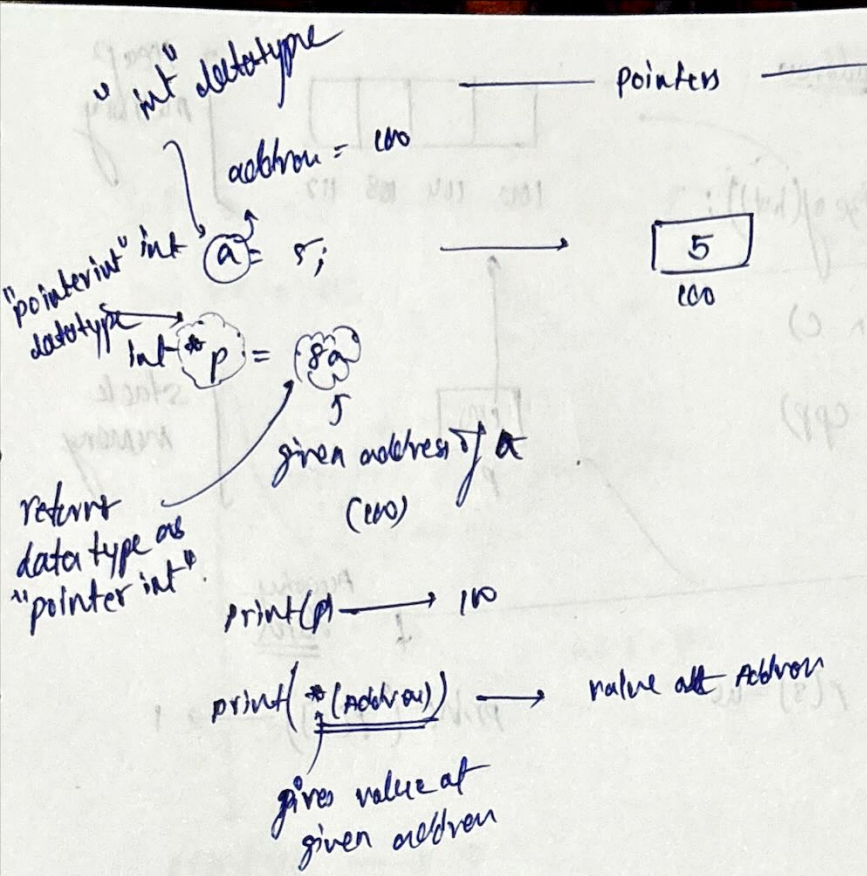 "int" datatype
pointers
address = 100
"pointer int" datatype
int a = 5;
5
100
int *p = &a
given address of a
(100)
returns
data type as
"pointer int".
print(p) 100
print(*(Address)) value at Address
gives value at
given address